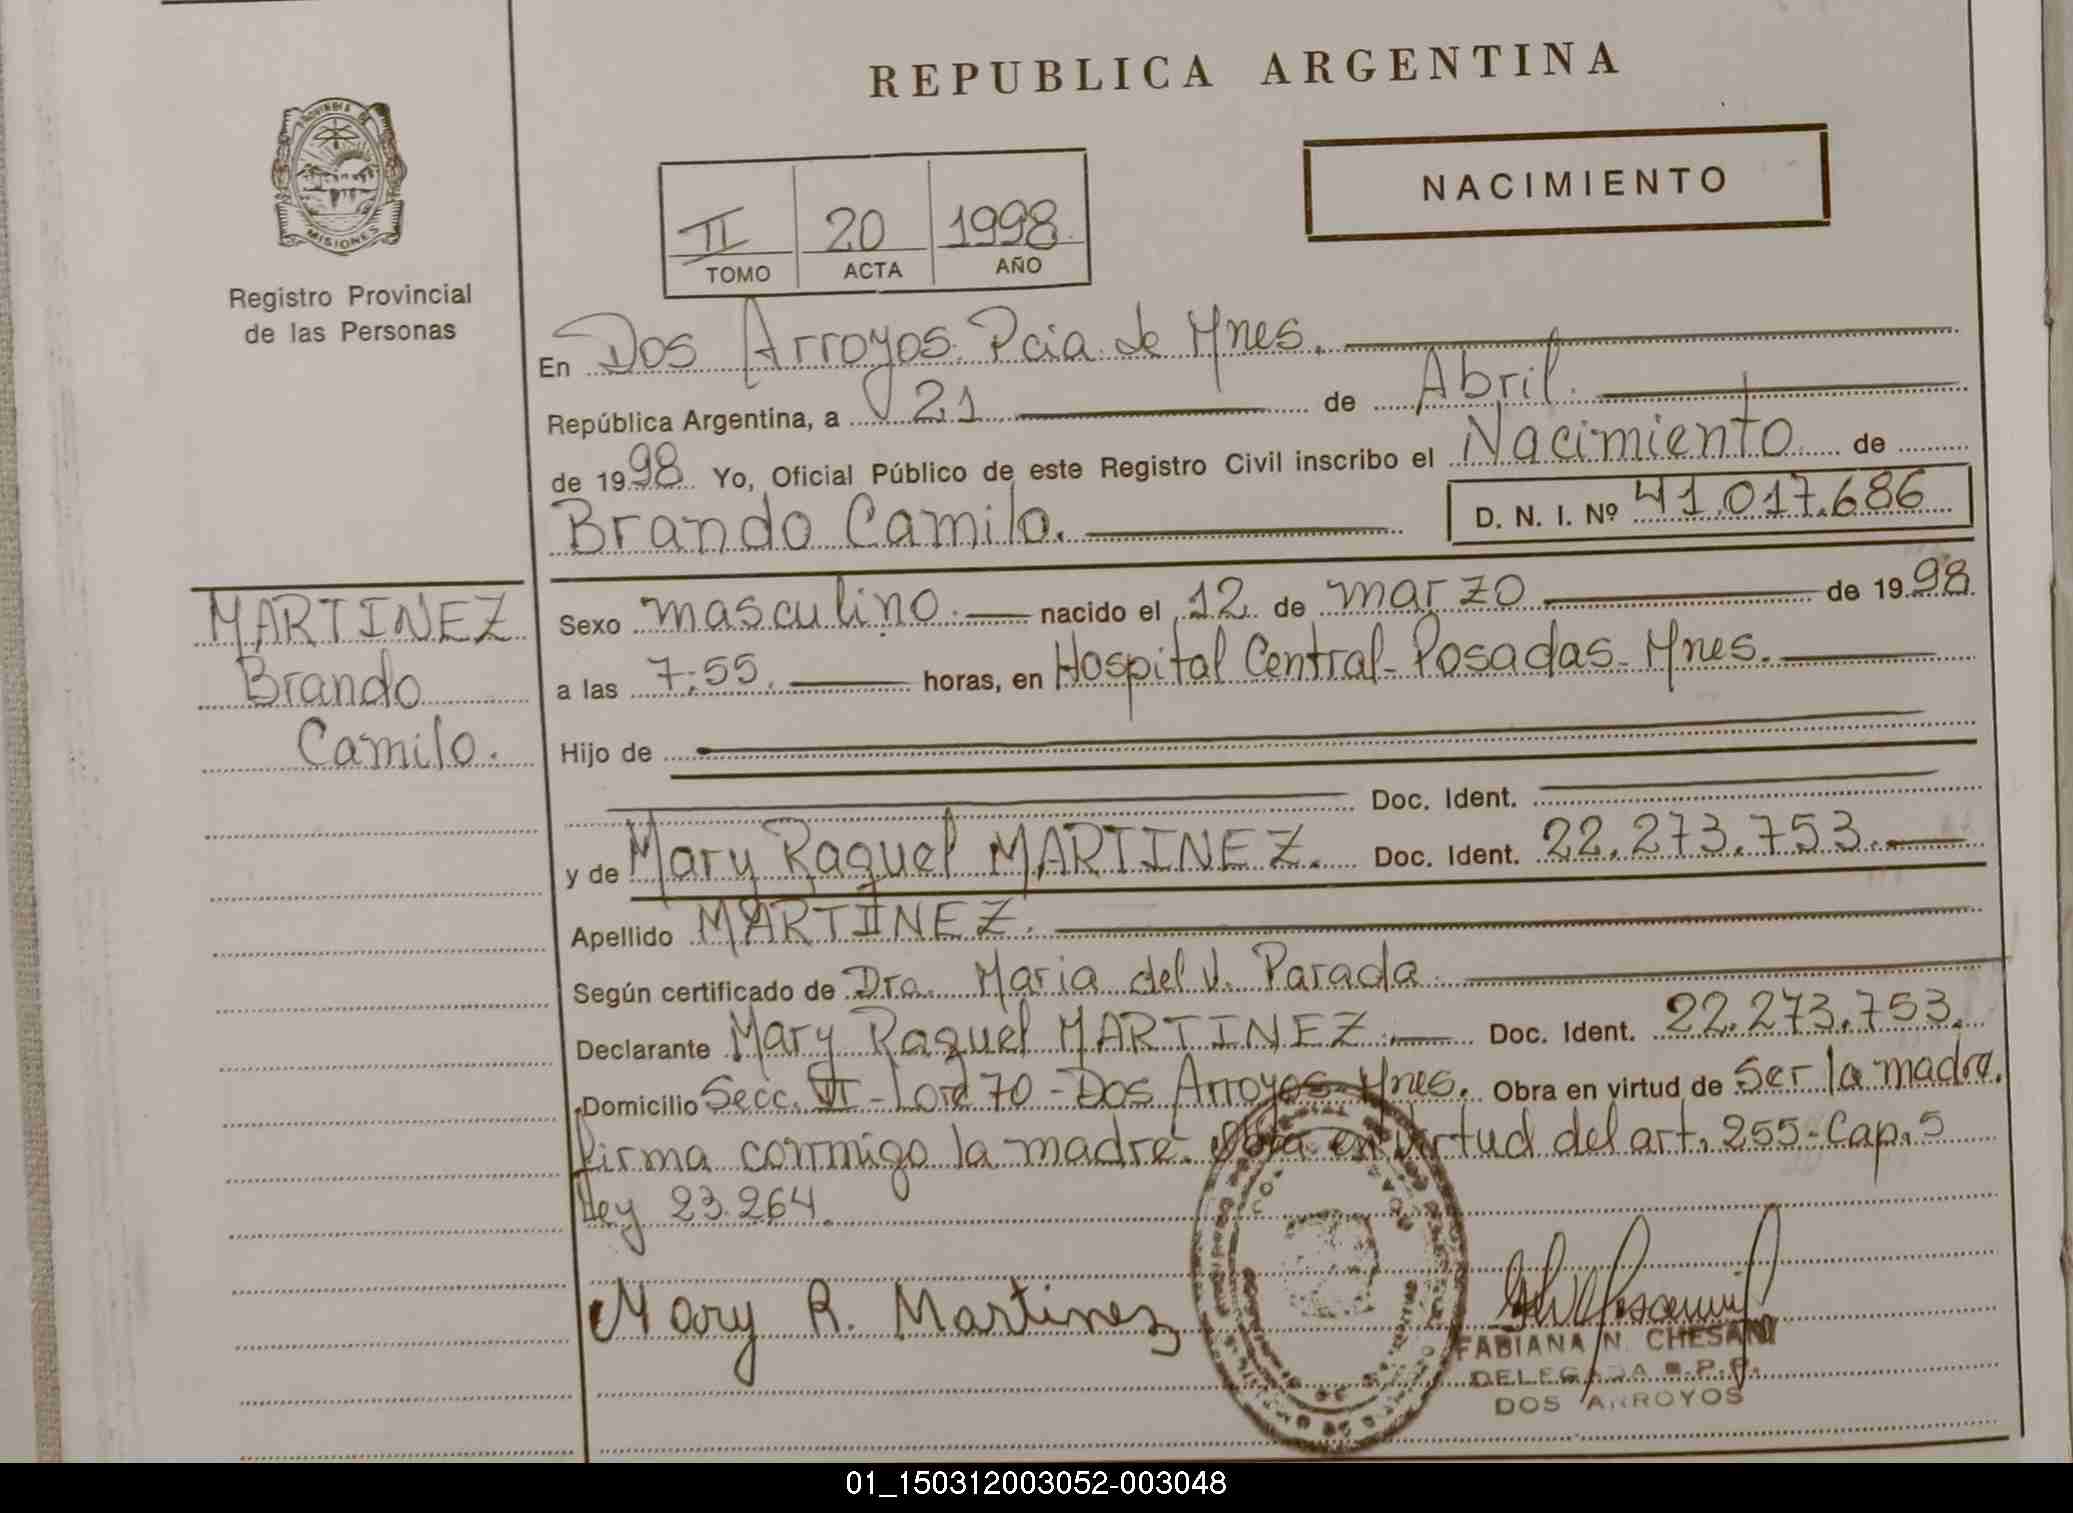 REPUBLICA ARGENTINA
PROVINCIA DE
MISIONES
Registro Provincial
de las Personas
NACIMIENTO
II 20 1998
TOMO ACTA AÑO
En Dos Arroyos. Pcia. de Mnes.
República Argentina, a 21 de Abril.
de 1998 Yo, Oficial Público de este Registro Civil inscribo el Nacimiento de
Brando Camilo. D. N. I. Nº 41.017.686
MARTINEZ
Brando
Camilo.
Sexo masculino. nacido el 12 de marzo de 1998
a las 7:55. horas, en Hospital Central- Posadas- Mnes.
Hijo de
Doc. Ident.
y de Mary Raquel MARTINEZ. Doc. Ident. 22.273.753.
Apellido MARTINEZ.
Según certificado de Dra. Maria del V. Parada
Declarante Mary Raquel MARTINEZ. Doc. Ident. 22.273.753.
Domicilio Secc. VI - 70 - Dos Arroyos- Mnes. Obra en virtud de Ser la madre.
firma conmigo la madre. Obra en virtud del art. 255- Cap. 5
Ley 23.264.
Mary R. Martinez
FABIANA N. CHESANI
DELEGADA R.P.P.
DOS ARROYOS
01_150312003052-003048